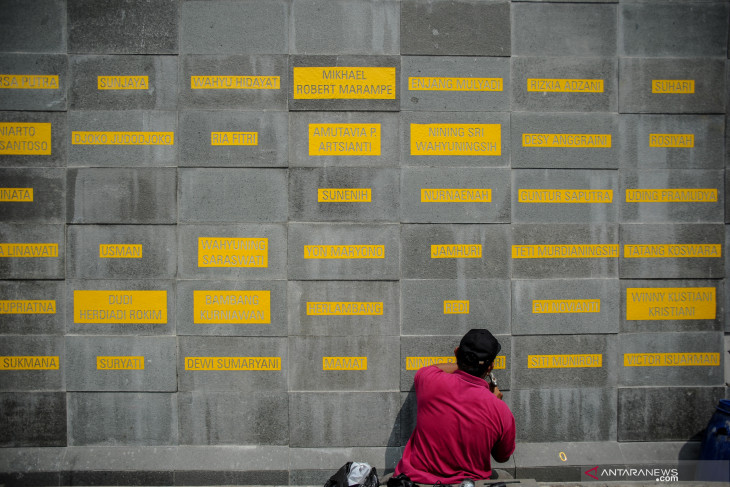 SUNJAYA
WAHYU HIDAYAT
MIKHAEL
ROBERT MARAMPE
ENJANG MULYADI
RIZKIA ADZANI
SUHARI
PUTRA
SANTOSO
DJOKO JUDODJOKO
RIA FITRI
AMUTAVIA P.
ARTSIANTI
NINING SRI
WAHYUNINGSIH
DESY ANGGRAINI
ROSIYAH
SUNENIH
NURNAENAH
GUNTUR SAPUTRA
UDING PRAMUDYA
LINAWATI
USMAN
WAHYUNING
SARASWATI
YON MARYONO
JAMHURI
TETI MURDIANINGSIH
TATANG KOSWARA
SUPRIATNA
DUDI
HERDIADI ROKIM
BAMBANG
KURNIAWAN
HERLAMBANG
TEDI
WINNY KUSTIANI
KRISTIANI
SUKMANA
SURYATI
DEWI SUMARYANI
MAMAT
SITI MUNIROH
VICTOR SUAKMAN
ANTARANEWS
.com